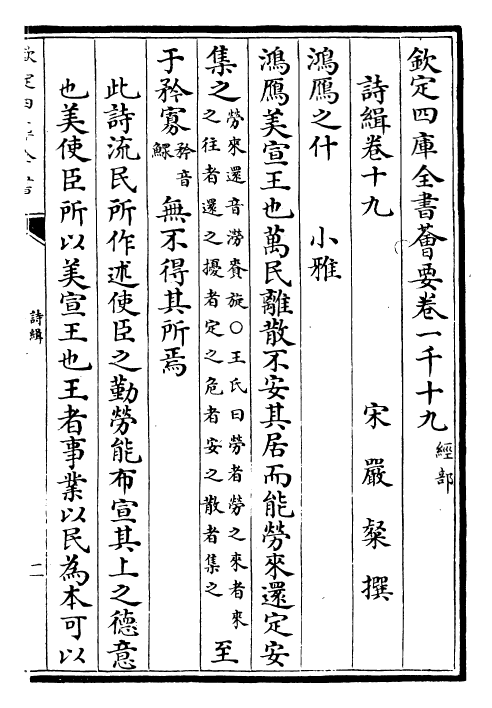 欽定四庫全書薈要卷一千十九 經部
詩緝卷十九 宋 嚴粲 撰
鴻鴈之什 小雅
鴻鴈美宣王也萬民離散不安其居而能勞來還定安
集之勞來還音澇賚旋○王氏曰勞者勞之來者來之往者還之擾者定之危者安之散者集之至
于矜寡矜音鰥無不得其所焉
此詩流民所作述使臣之勤勞能布宣其上之德意
也美使臣所以美宣王也王者事業以民為本可以
詩緝
二